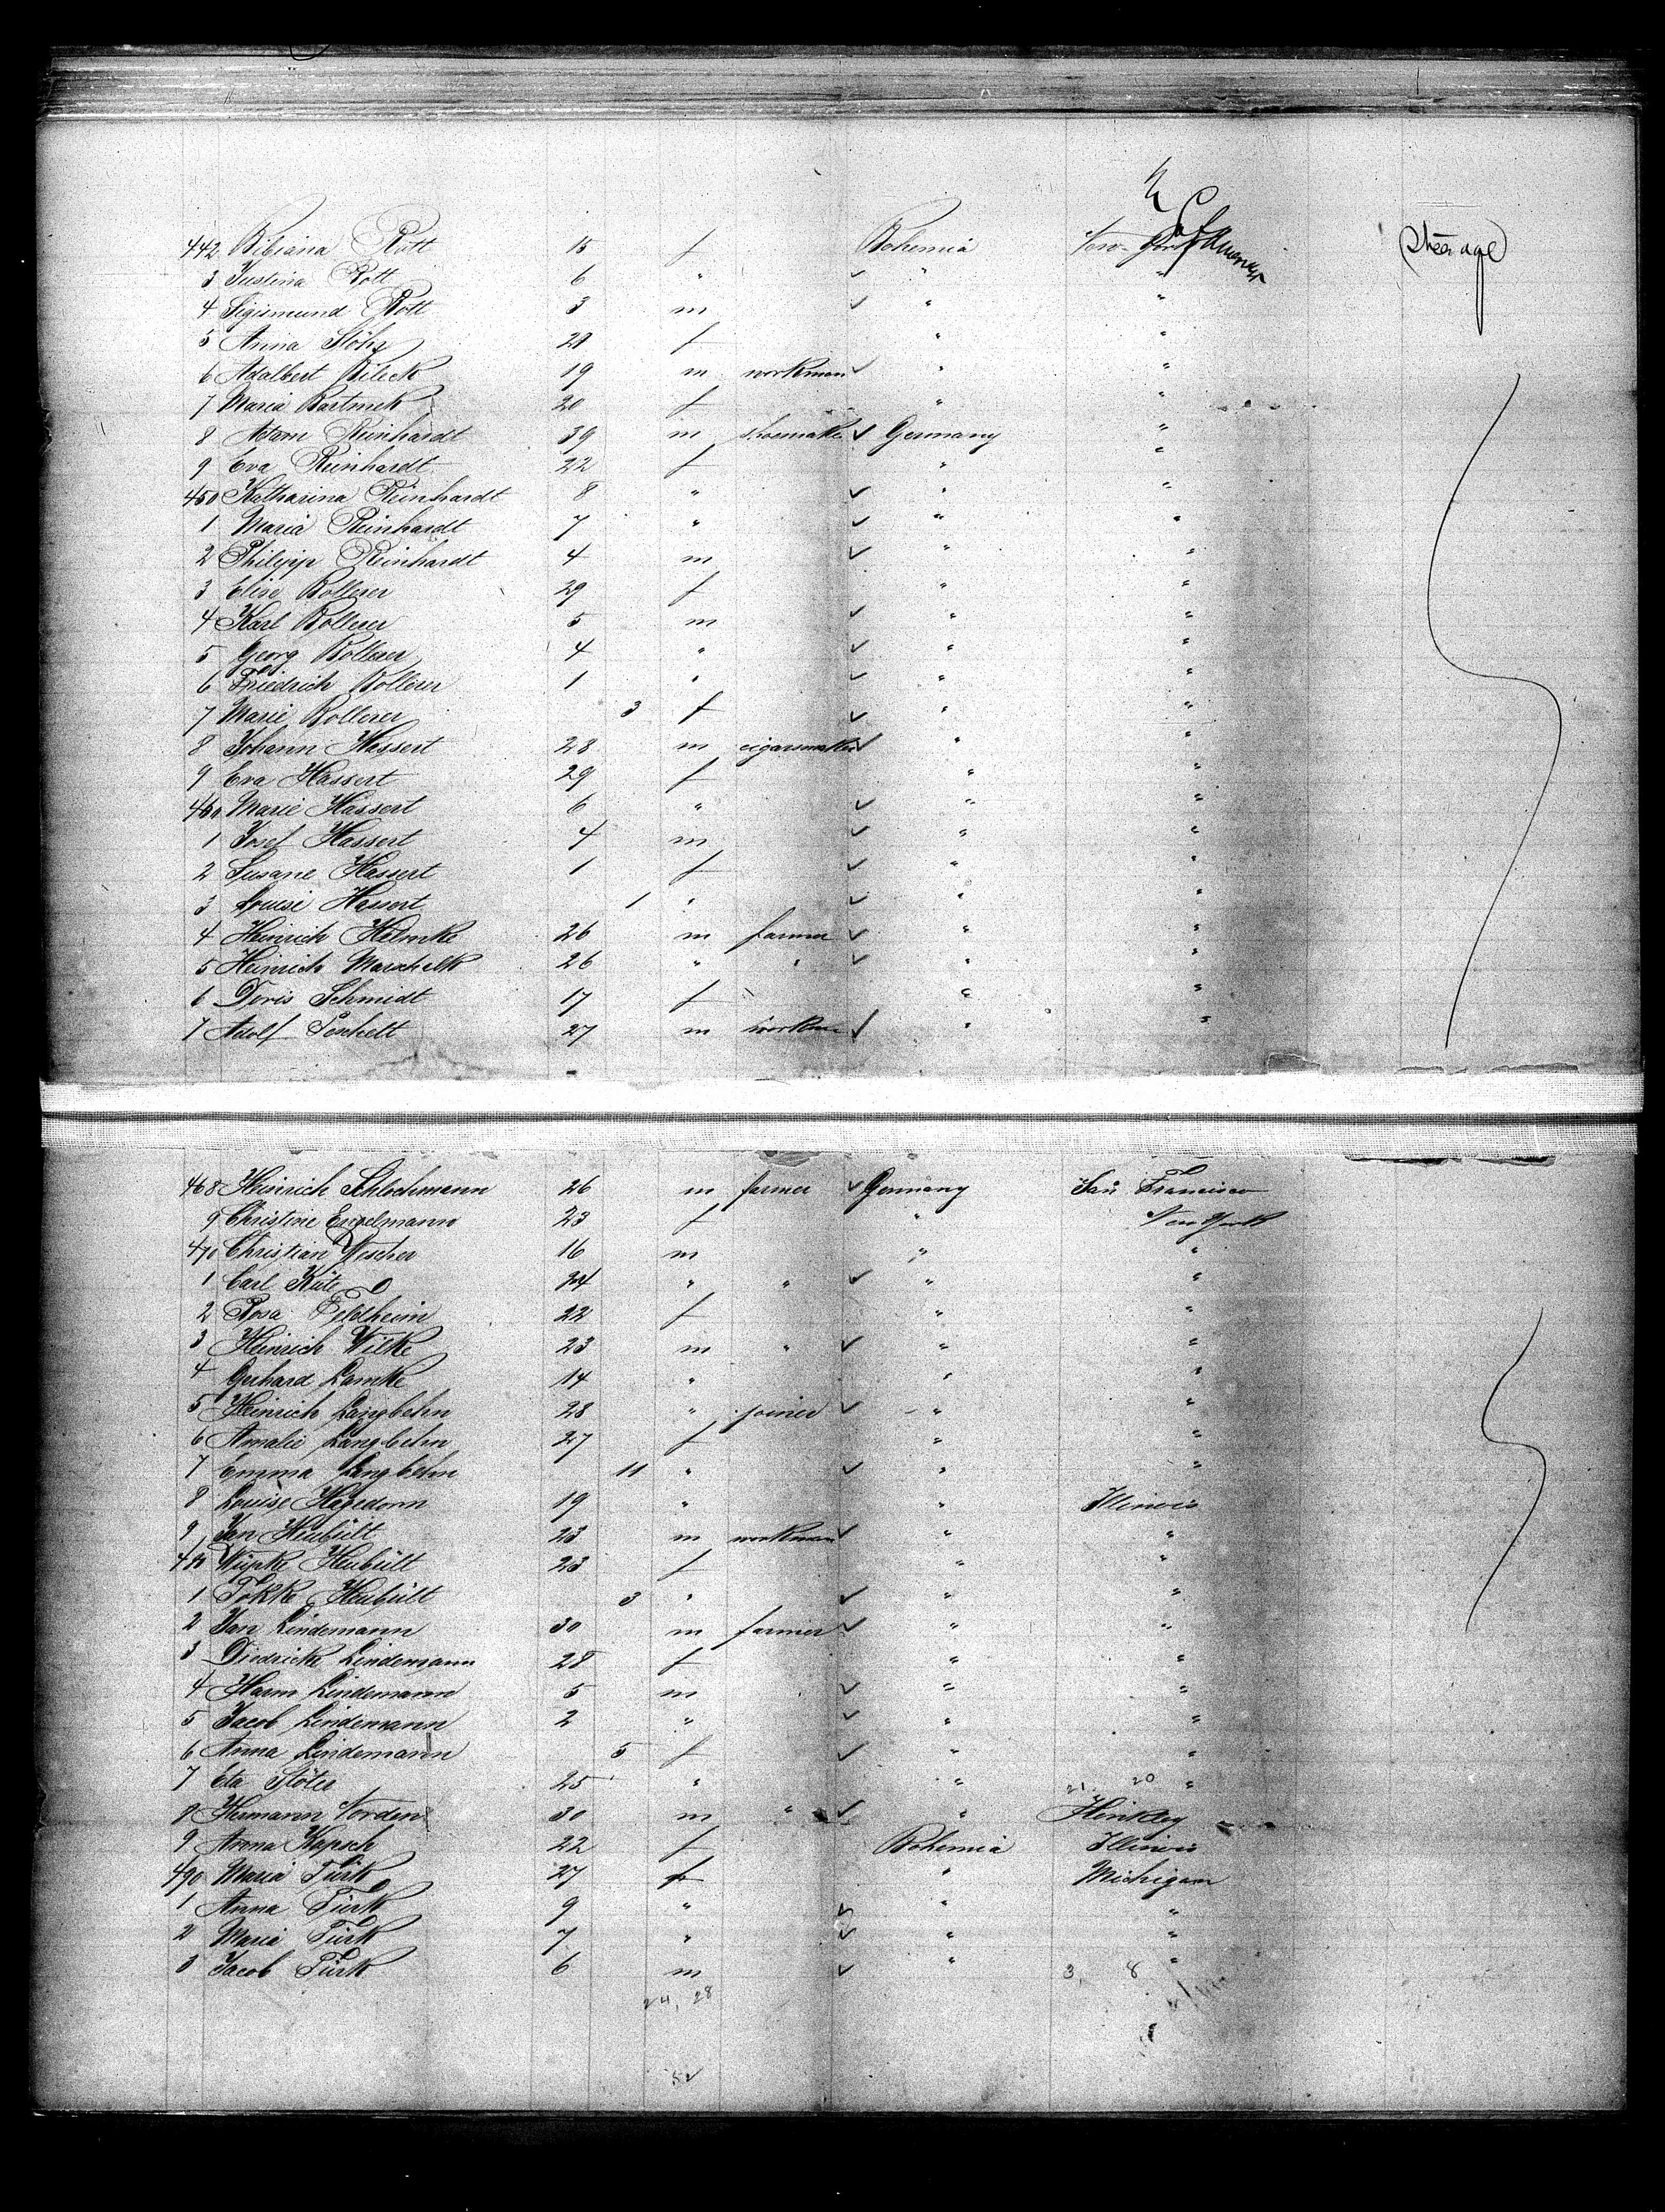 442 Bibiana Rott 15 f Bohemia New-York Steerage
3 Justina Rott 6 " ✓ " "
4 Sigismund Rott 3 m ✓ " "
5 Anna Stöhr f " "
6 Adalbert Bileck 19 m workman ✓ " "
7 Maria Bartnick 20 f " "
8 Adam Reinhardt 39 m shoemaker ✓ Germany "
9 Eva Reinhardt 22 f " "
450 Katharina Reinhardt 8 " ✓ " "
1 Maria Reinhardt 7 " ✓ " "
2 Philipp Reinhardt 4 m ✓ " "
3 Elise Bollerer 29 f " "
4 Karl Bollerer 5 m ✓ " "
5 Georg Bollerer 4 " ✓ " "
6 Friedrich Bollerer 1 " ✓ " "
7 Marie Bollerer 3 f ✓ " "
8 Johann Hassert 28 m cigarsmaker ✓ " "
9 Eva Hassert 29 f " "
460 Marie Hassert 6 " ✓ " "
1 Josef Hassert 4 m ✓ " "
2 Susane Hassert 1 f ✓ " "
3 Louise Hassert 1 " ✓ " "
4 Heinrich Helmke 26 m farmer ✓ " "
5 Heinrich Marschelk 26 " " ✓ " "
6 Doris Schmidt 17 f " "
7 Adolf 27 m workman ✓ " "
468 Heinrich Schlochmann 26 m farmer ✓ Germany San Francisco
9 Christine Engelmann 23 f " New York
470 Christian Wescher 16 m " "
1 Carl Küte 24 " " ✓ " "
2 Rosa Feldheim 22 f " "
3 Heinrich Wilke 23 m " ✓ " "
4 Gerhard Lamke 14 " " "
5 Heinrich Langbehn 28 " joiner ✓ " "
6 Amalie Langbehn 27 f " "
7 Emma Langbehn 11 " ✓ " "
8 Louise Hagedorn 19 " " Illinois
9 Jan Heubült 23 m workman ✓ " "
480 Wüpke Heubült 23 f " "
1 Tokke Heubült 3 " ✓ " "
2 Jan Lindemann 30 m farmer ✓ " "
3 Diedricke Lindemann 28 f " "
4 Harm Lindemann 5 m ✓ " "
5 Jacob Lindemann 2 " ✓ " "
6 Anna Lindemann 5 f ✓ " "
7 Eta Stöter 25 " " 21 20 "
8 Hermann Norden 30 m " ✓ " Hinkley
9 Anna Kapsch 22 f Bohemia Illinois
490 Maria Türk 27 f " Michigan
1 Anna Türk 9 " ✓ " "
2 Maria Türk 7 " ✓ " "
3 Jacob Türk 6 m ✓ " 3, 8 "
24, 28